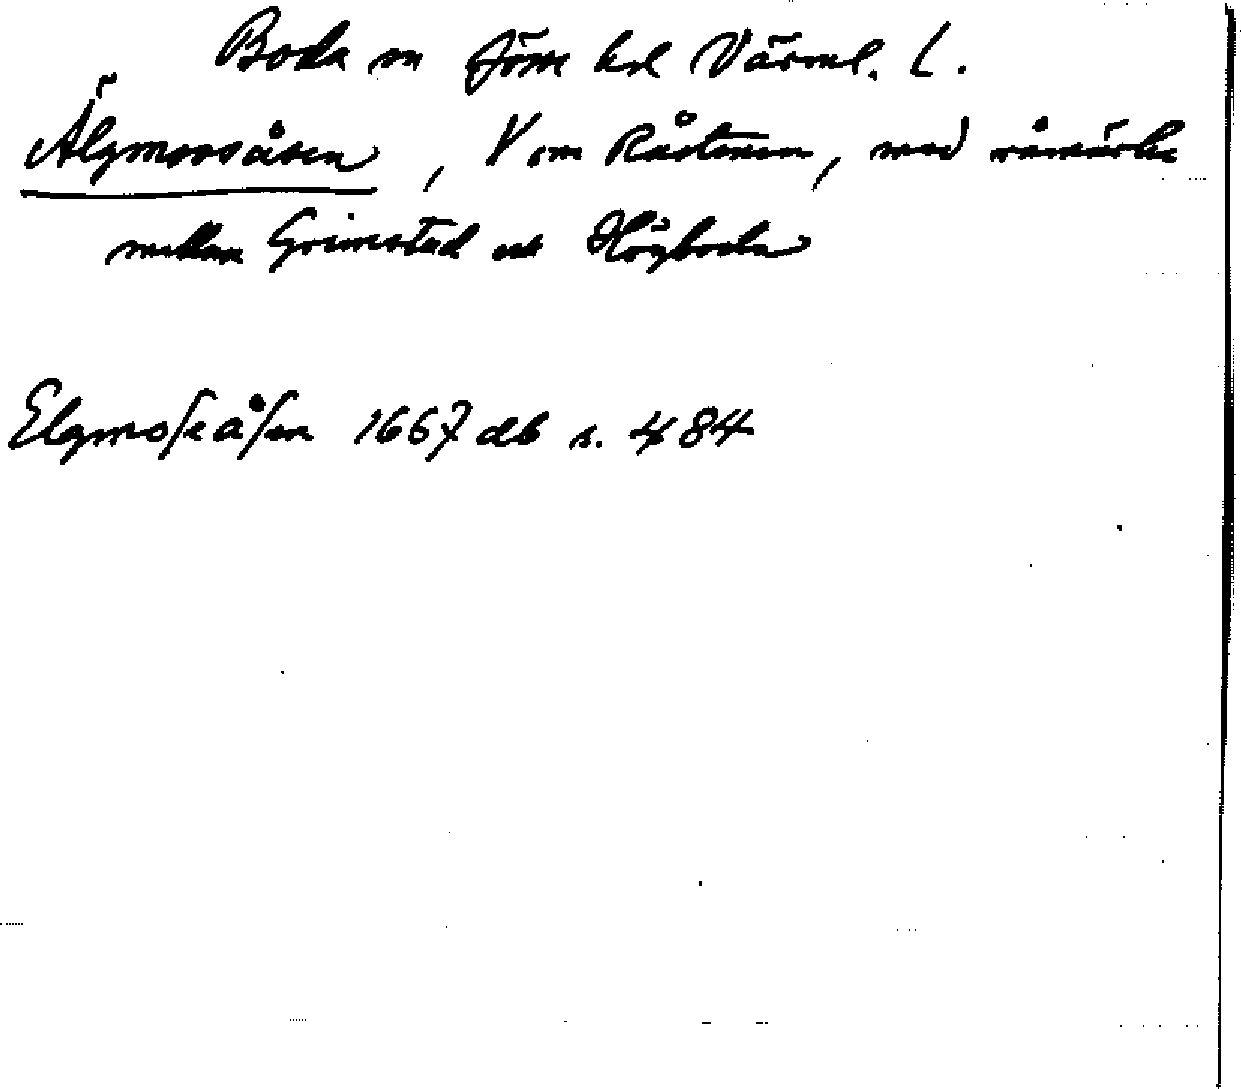 Boda sn Jösse hd Värml. l.
Älgmossåsen, V om Råstenen, med råmärke
mellan Grimstad och Högboda
Elgmoſeåſen 1667 db s. 484